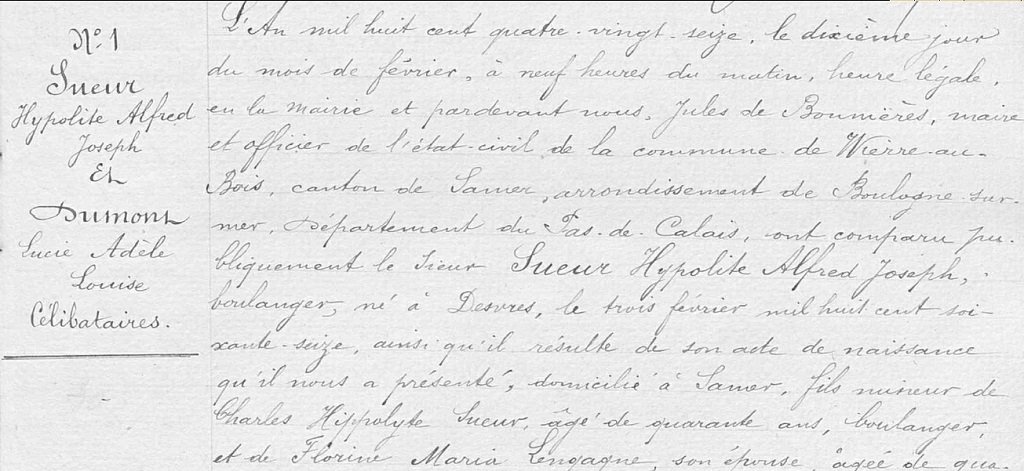 N° 1
Sueur
Hypolite Alfred
Joseph
Et
Dumont
Lucie Adèle
Louise
Célibataires.
L'An mil huit cent quatre-vingt-seize, le dixième jour
du mois de février, à neuf heures du matin, heure légale,
en la mairie et pardevant nous, Jules de Bonnières, maire
et officier de l'état-civil de la commune de Wierre-au-
Bois, canton de Samer, arrondissement de Boulogne-sur-
mer, Département du Pas-de-Calais, ont comparu pu-
bliquement le sieur Sueur Hypolite Alfred Joseph,
boulanger, né à Desvres, le trois février mil huit cent soi-
xante-seize, ainsi qu'il résulte de son acte de naissance
qu'il nous a présenté, domicilié à Samer, fils mineur de
Charles Hippolyte Sueur, âgé de quarante ans, boulanger,
et de Florine Maria Lengagne, son épouse, âgée de qua-